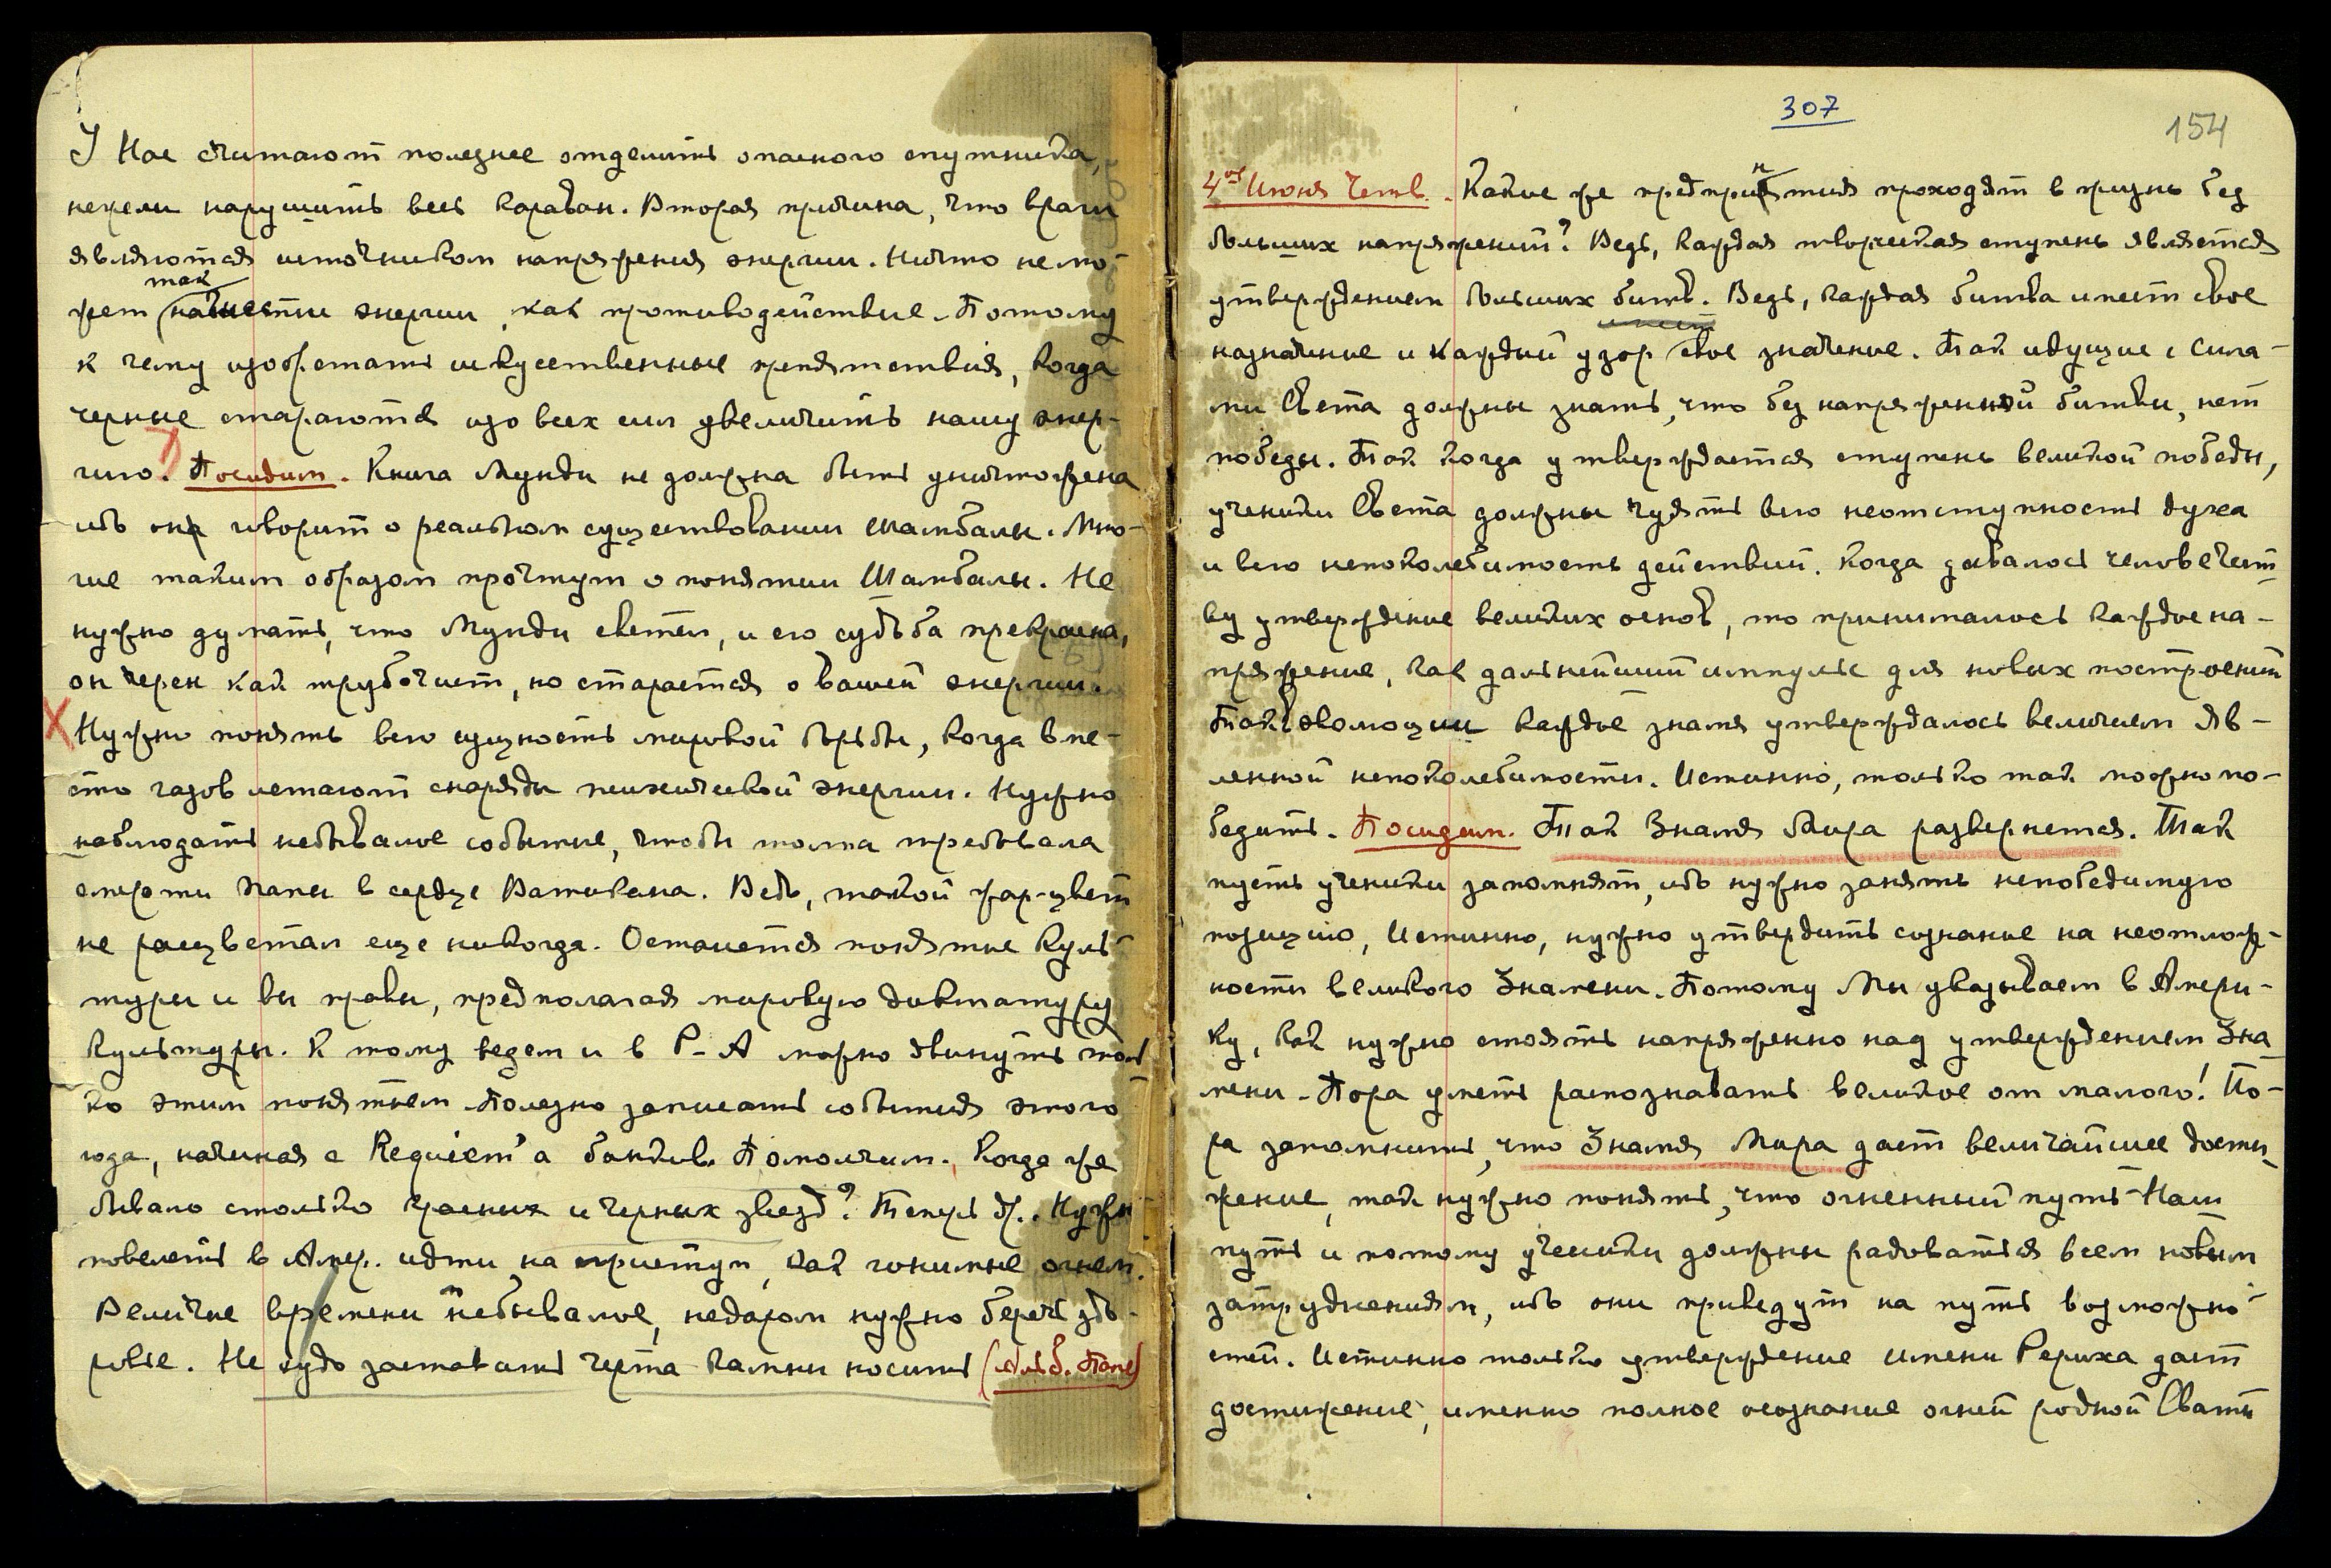 У Нас считают полезнее отделить опасного спутника,
нежели нарушить весь караван. Вторая причина, что враги
являются источником напряжения энергии. Ничто не мо-
так
жет нагнести энергии, как противодействие. Потому
к чему изобретать искусственные препятствия, когда
черные стараются изо всех сил увеличить нашу энер-
гию. Посидим. Книга Мунди не должна быть уничтожена
ибо она говорит о реальном существовании Шамбалы. Мно-
гие таким образом прочтут о понятии Шамбалы. Не
нужно думать, что Мунди светел, и его судьба прекрасна,
он черен как трубочист, но старается о вашей энергии
Х Нужно понять всю сущность мировой борьбы, когда вме-
сто газов летают снаряды психической энергии. Нужно
наблюдать небывалое событие, чтобы толпа требовала
смерти Папы в сердце Ватикана. Ведь, такой жар-цвет
не расцветал еще никогда. Останется понятие Куль-
туры и вы правы, предполагая мировую диктатуру
Культуры. К тому ведем и в Р-А можно двинуть толь
ко этим понятием. Полезно записать события этого
года, начиная с Requiem'a банков. Помолчим. Когда же
бывало столько красных и черных звезд? Теперь др. Нужн
повелеть в Амер. идти на приступ, как гонимые огнем.
Величие времени небывалое, недаром нужно беречь здо-
ровье. Не худо заставить черта камни носить (Альб. Папе)
307
154
4ое Июня Четв. Какие же предприн
ятия проходят в жизнь без
больших напряжений? Ведь, каждая творческая ступень является
утверждением больших битв. Ведь, каждая битва имеет свое
назначение и каждый узор свое значение. Так идущие с Сила-
ми Света должны знать, что без напряженной битвы, нет
победы. Так когда утверждается ступень великой победы,
ученики Света должны чуять всю неотступность духа
и всю непоколебимость действий. Когда давалось человечест-
ву утверждение великих основ, то принималось каждое на-
пряжение, как дальнейший импульс для новых построений
Так эволюции каждое знамя утверждалось величием яв-
ленной непоколебимости. Истинно, только так можно по-
бедить. Посидим. Так Знамя Мира развернется. Так
пусть ученики запомнят, ибо нужно занять непобедимую
позицию, Истинно, нужно утвердить сознание на неотлож-
ности великого Знамени. Потому Мы указываем в Амери-
ку, как нужно стоять напряженно над утверждением Зна-
мени. Пора уметь распознавать великое от малого! По-
ра запомнить, что Знамя Мира дает величайшее дости-
жение, так нужно понять, что огненный путь Наш
путь и потому ученики должны радоваться всем новым
затруднениям, ибо они приведут на путь возможно-
стей. Истинно только утверждение имени Рериха дает
достижение, именно полное осознание огней родной Свати